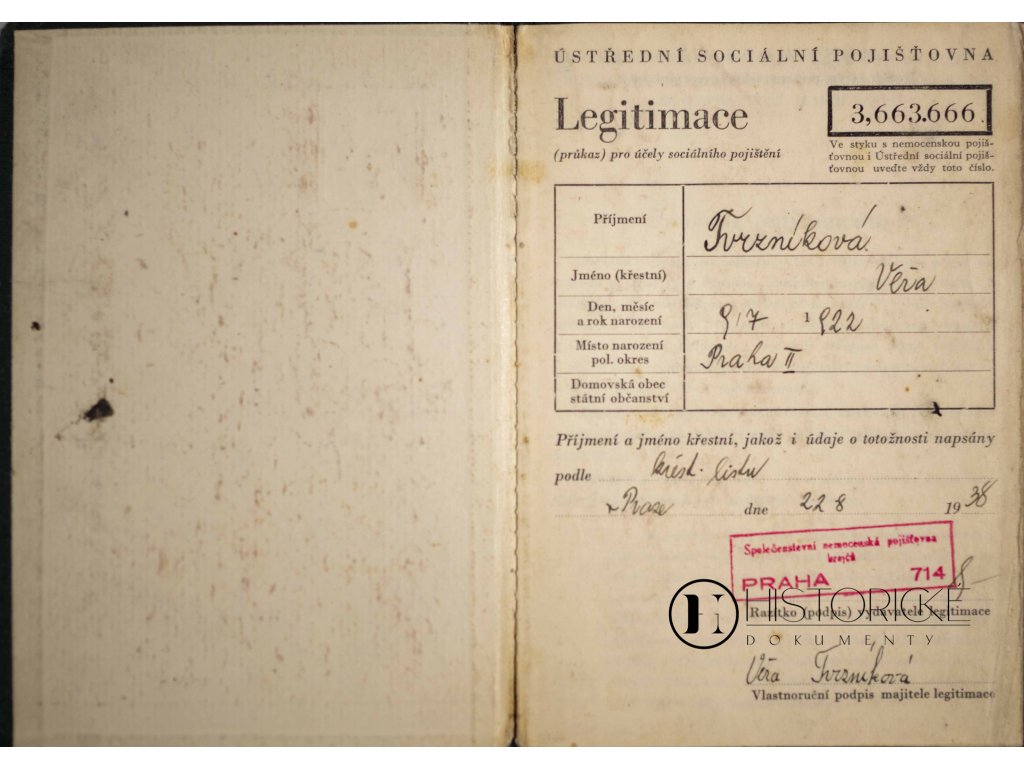 ÚSTŘEDNÍ SOCIÁLNÍ POJIŠŤOVNA
Legitimace
3,663.666
(průkaz) pro účely sociálního pojištění
Ve styku s nemocenskou pojiš-
ťovnou i Ústřední sociální pojiš-
ťovnou uveďte vždy toto číslo.
Příjmení
Tvrzníková
Jméno (křestní)
Věra
Den, měsíc
a rok narození
9/7 1922
Místo narození
pol. okres
Praha II
Domovská obec
státní občanství
Příjmení a jméno křestní, jakož i údaje o totožnosti napsány
podle křest. listu
v Praze dne 22 8 1938
Společenstevní nemocenská pojišťovna
krejčů
PRAHA 714
Razítko (podpis) vydavatele legitimace
HISTORICKÉ
DOKUMENTY
Věra Tvrzníková
Vlastnoruční podpis majitele legitimace